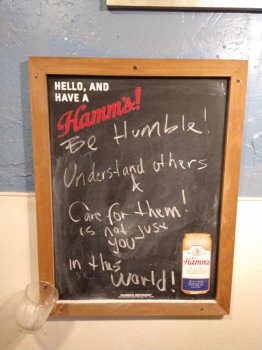 HELLO, AND
HAVE A
Hamm's!
Be Humble!
Understand others
&
Care for them!
is not just
you
in this
world!
Hamm's